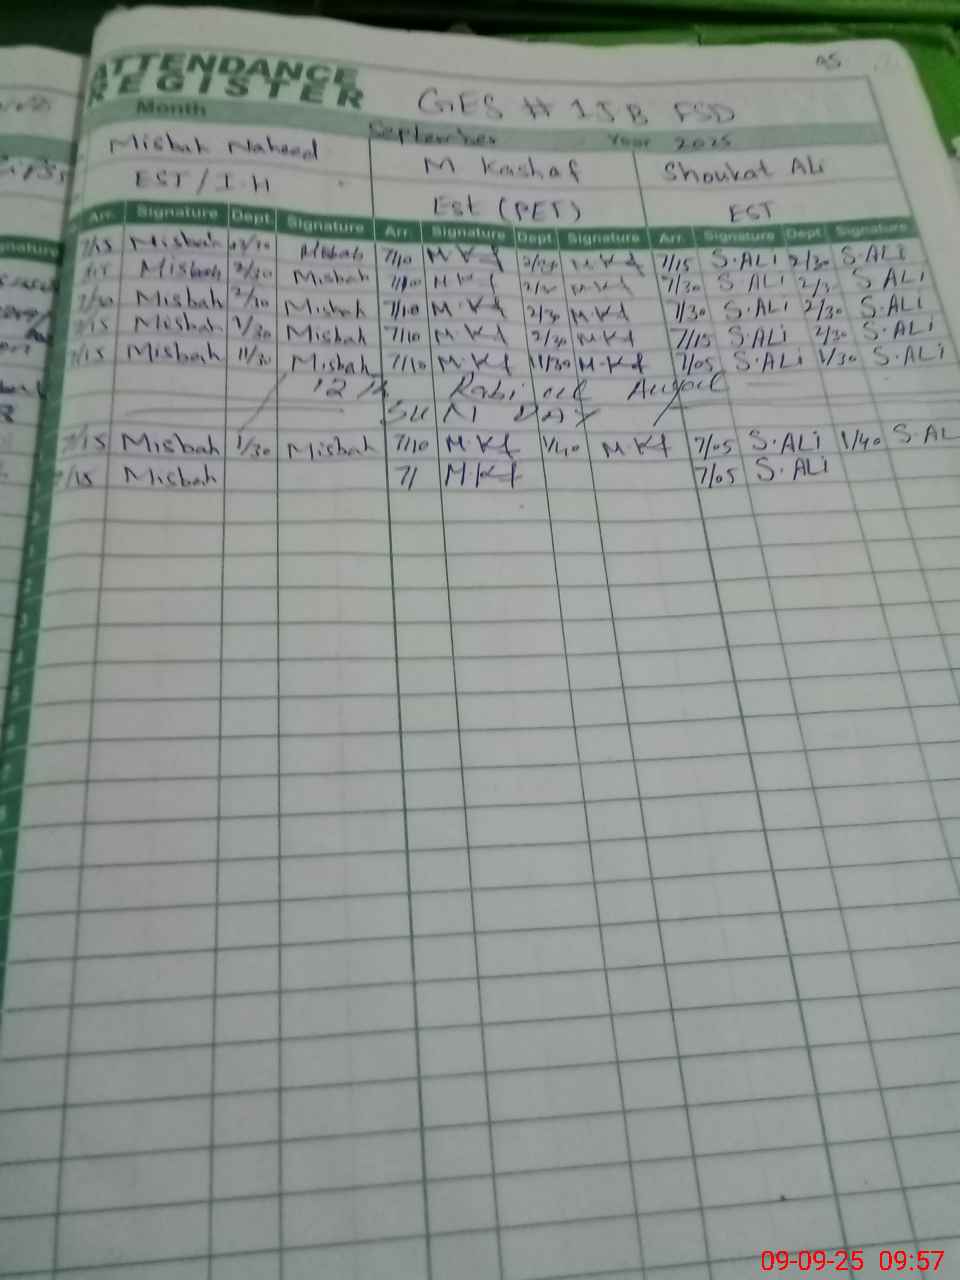 95
ATTENDANCE
REGISTER
GES # 1 J B FSD
Month September Year 2025
Misbah Naheed M Kashaf Shoukat Ali
EST / I.H Est (PET) EST
Arr. Signature Dept Signature Arr. Signature Dept Signature Arr. Signature Dept Signature
7/15 Misbah Misbah 7/10 M·Kf 2/30 M·Kf 7/15 S·ALi 2/30 S·ALi
Misbah 2/30 Misbah 7/10 M·Kf M·Kf 7/30 S·ALi 2/30 S·ALi
Misbah 2/30 Misbah 7/10 M·Kf 2/30 M·Kf 7/30 S·ALi 2/30 S·ALi
7/15 Misbah 1/30 Misbah 7/10 M·Kf 2/30 M·Kf 7/15 S·ALi 2/30 S·ALi
7/15 Misbah 11/30 Misbah 7/10 M·Kf 11/30 M·Kf 7/05 S·ALi 1/30 S·ALi
12 Rabi
SUN DAY
7/15 Misbah 1/30 Misbah 7/10 M·Kf 1/40 M·Kf 7/05 S·ALi 1/40 S·AL
7/15 Misbah 7/ M·Kf 7/05 S·ALi
09-09-25 09:57